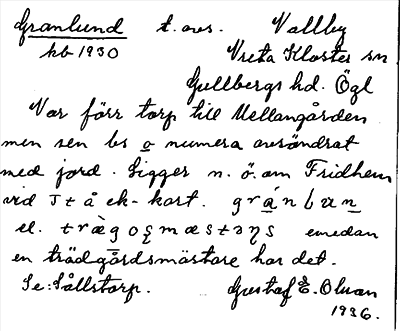 Granlund t. avs. Vallby
kb 1930 Vreta Kloster sn
Gullbergs hd. Ögl
Var förr torp till Mellangården
men sen bs o numera avsöndrat
med jord. Ligger n. ö. om Fridhem
vid J t å ek-kart. gránlɯn
el. trægosmæstəɳs emedan
en trädgårdsmästare har det.
Se: Sållstorp. Gustaf E. Olvan
1936.